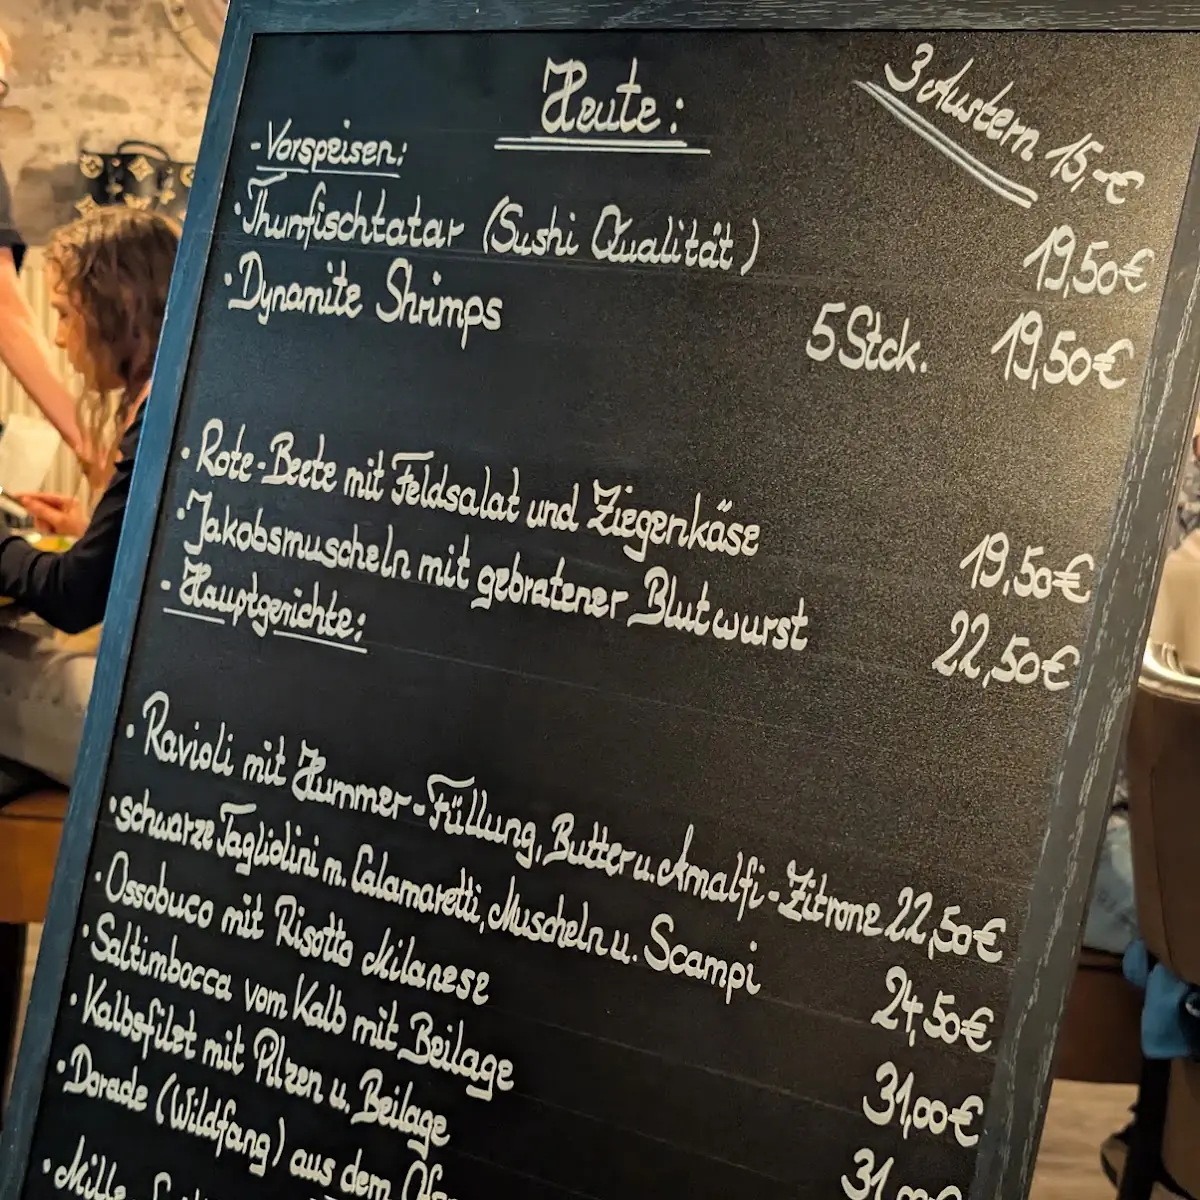 Heute:
3 Austern 15,-€
- Vorspeisen:
· Thunfischtatar (Sushi Qualität) 19,50€
· Dynamite Shrimps 5 Stck. 19,50€
· Rote-Beete mit Feldsalat und Ziegenkäse 19,50€
· Jakobsmuscheln mit gebratener Blutwurst 22,50€
- Hauptgerichte:
· Ravioli mit Hummer-Füllung, Butter u. Amalfi-Zitrone 22,50€
· schwarze Tagliolini m. Calamaretti, Muscheln u. Scampi 24,50€
· Ossobuco mit Risotto Milanese 31,00€
· Saltimbocca vom Kalb mit Beilage 31,00€
· Kalbsfilet mit Pilzen u. Beilage
· Dorade (Wildfang) aus dem